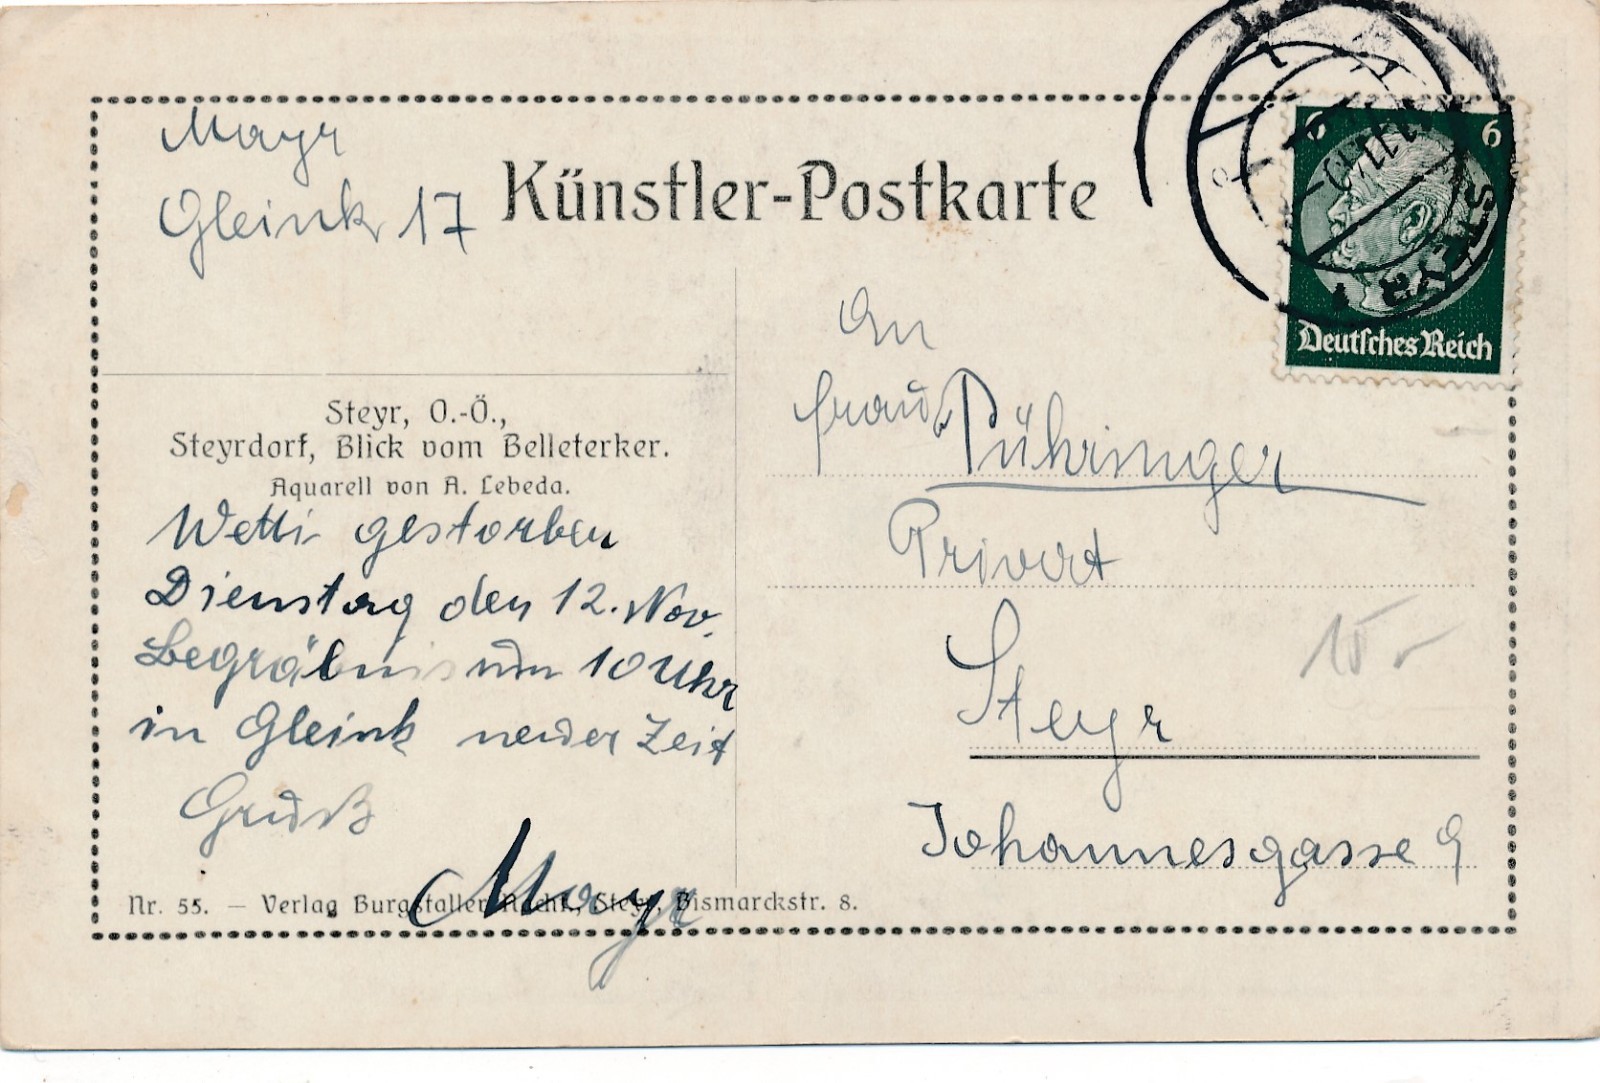 Mayr
Gleink 17
Künstler-Postkarte
6 6
Deutsches Reich
STEYR
An
Frau Pühringer
Privat
Steyr
Johannesgasse 9
Steyr, O.-Ö.,
Steyrdorf, Blick vom Belleterker.
Aquarell von A. Lebeda.
Wetti gestorben
Dienstag den 12. Nov.
Begräbnis um 10 Uhr
in Gleink neuer Zeit
Gruß
Mayr
Nr. 55. — Verlag Burgstaller Nachf., Steyr, Bismarckstr. 8.